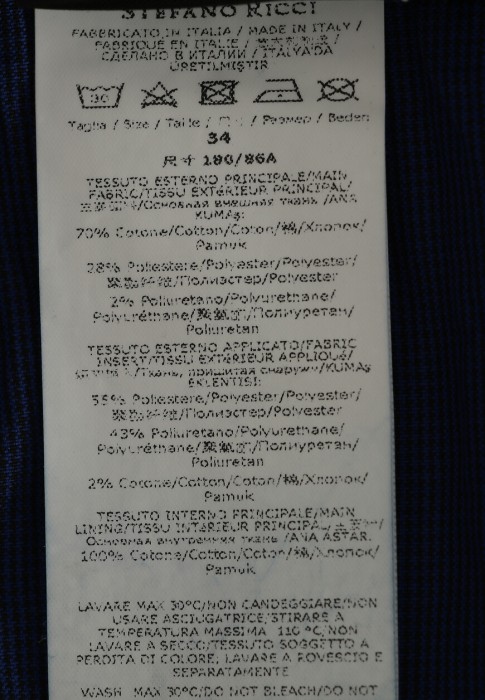 STEFANO RICCI
FABBRICATO IN ITALIA / MADE IN ITALY /
FABRIQUÉ EN ITALIE /
СДЕЛАНО В ИТАЛИИ / ITALYA'DA
ÜRETİLMİŞTİR
30
Taglia / Size / Taille / 尺寸 / Размер / Beden
34
尺寸 180/86A
TESSUTO ESTERNO PRINCIPALE/MAIN
FABRIC/TISSU EXTÉRIEUR PRINCIPAL/
Основная внешняя ткань /ANA
KUMAŞ:
70% Cotone/Cotton/Coton/棉/Хлопок/
Pamuk
28% Poliestere/Polyester/Polyester/
聚酯纤维/Полиэстер/Polyester
2% Poliuretano/Polyurethane/
Polyuréthane/聚氨酯/Полиуретан/
Poliuretan
TESSUTO ESTERNO APPLICATO/FABRIC
INSERT/TISSU EXTÉRIEUR APPLIQUÉ/
/Ткань, пришитая снаружи/KUMAŞ
EKLENTİSİ:
55% Poliestere/Polyester/Polyester/
聚酯纤维/Полиэстер/Polyester
43% Poliuretano/Polyurethane/
Polyuréthane/聚氨酯/Полиуретан/
Poliuretan
2% Cotone/Cotton/Coton/棉/Хлопок/
Pamuk
TESSUTO INTERNO PRINCIPALE/MAIN
LINING/TISSU INTÉRIEUR PRINCIPAL/
Основная внутренняя ткань /ANA ASTAR:
100% Cotone/Cotton/Coton/棉/Хлопок/
Pamuk
LAVARE MAX 30°C/NON CANDEGGIARE/NON
USARE ASCIUGATRICE/STIRARE A
TEMPERATURA MASSIMA 110 °C/NON
LAVARE A SECCO/TESSUTO SOGGETTO A
PERDITA DI COLORE, LAVARE A ROVESCIO E
SEPARATAMENTE
WASH MAX 30°C/DO NOT BLEACH/DO NOT